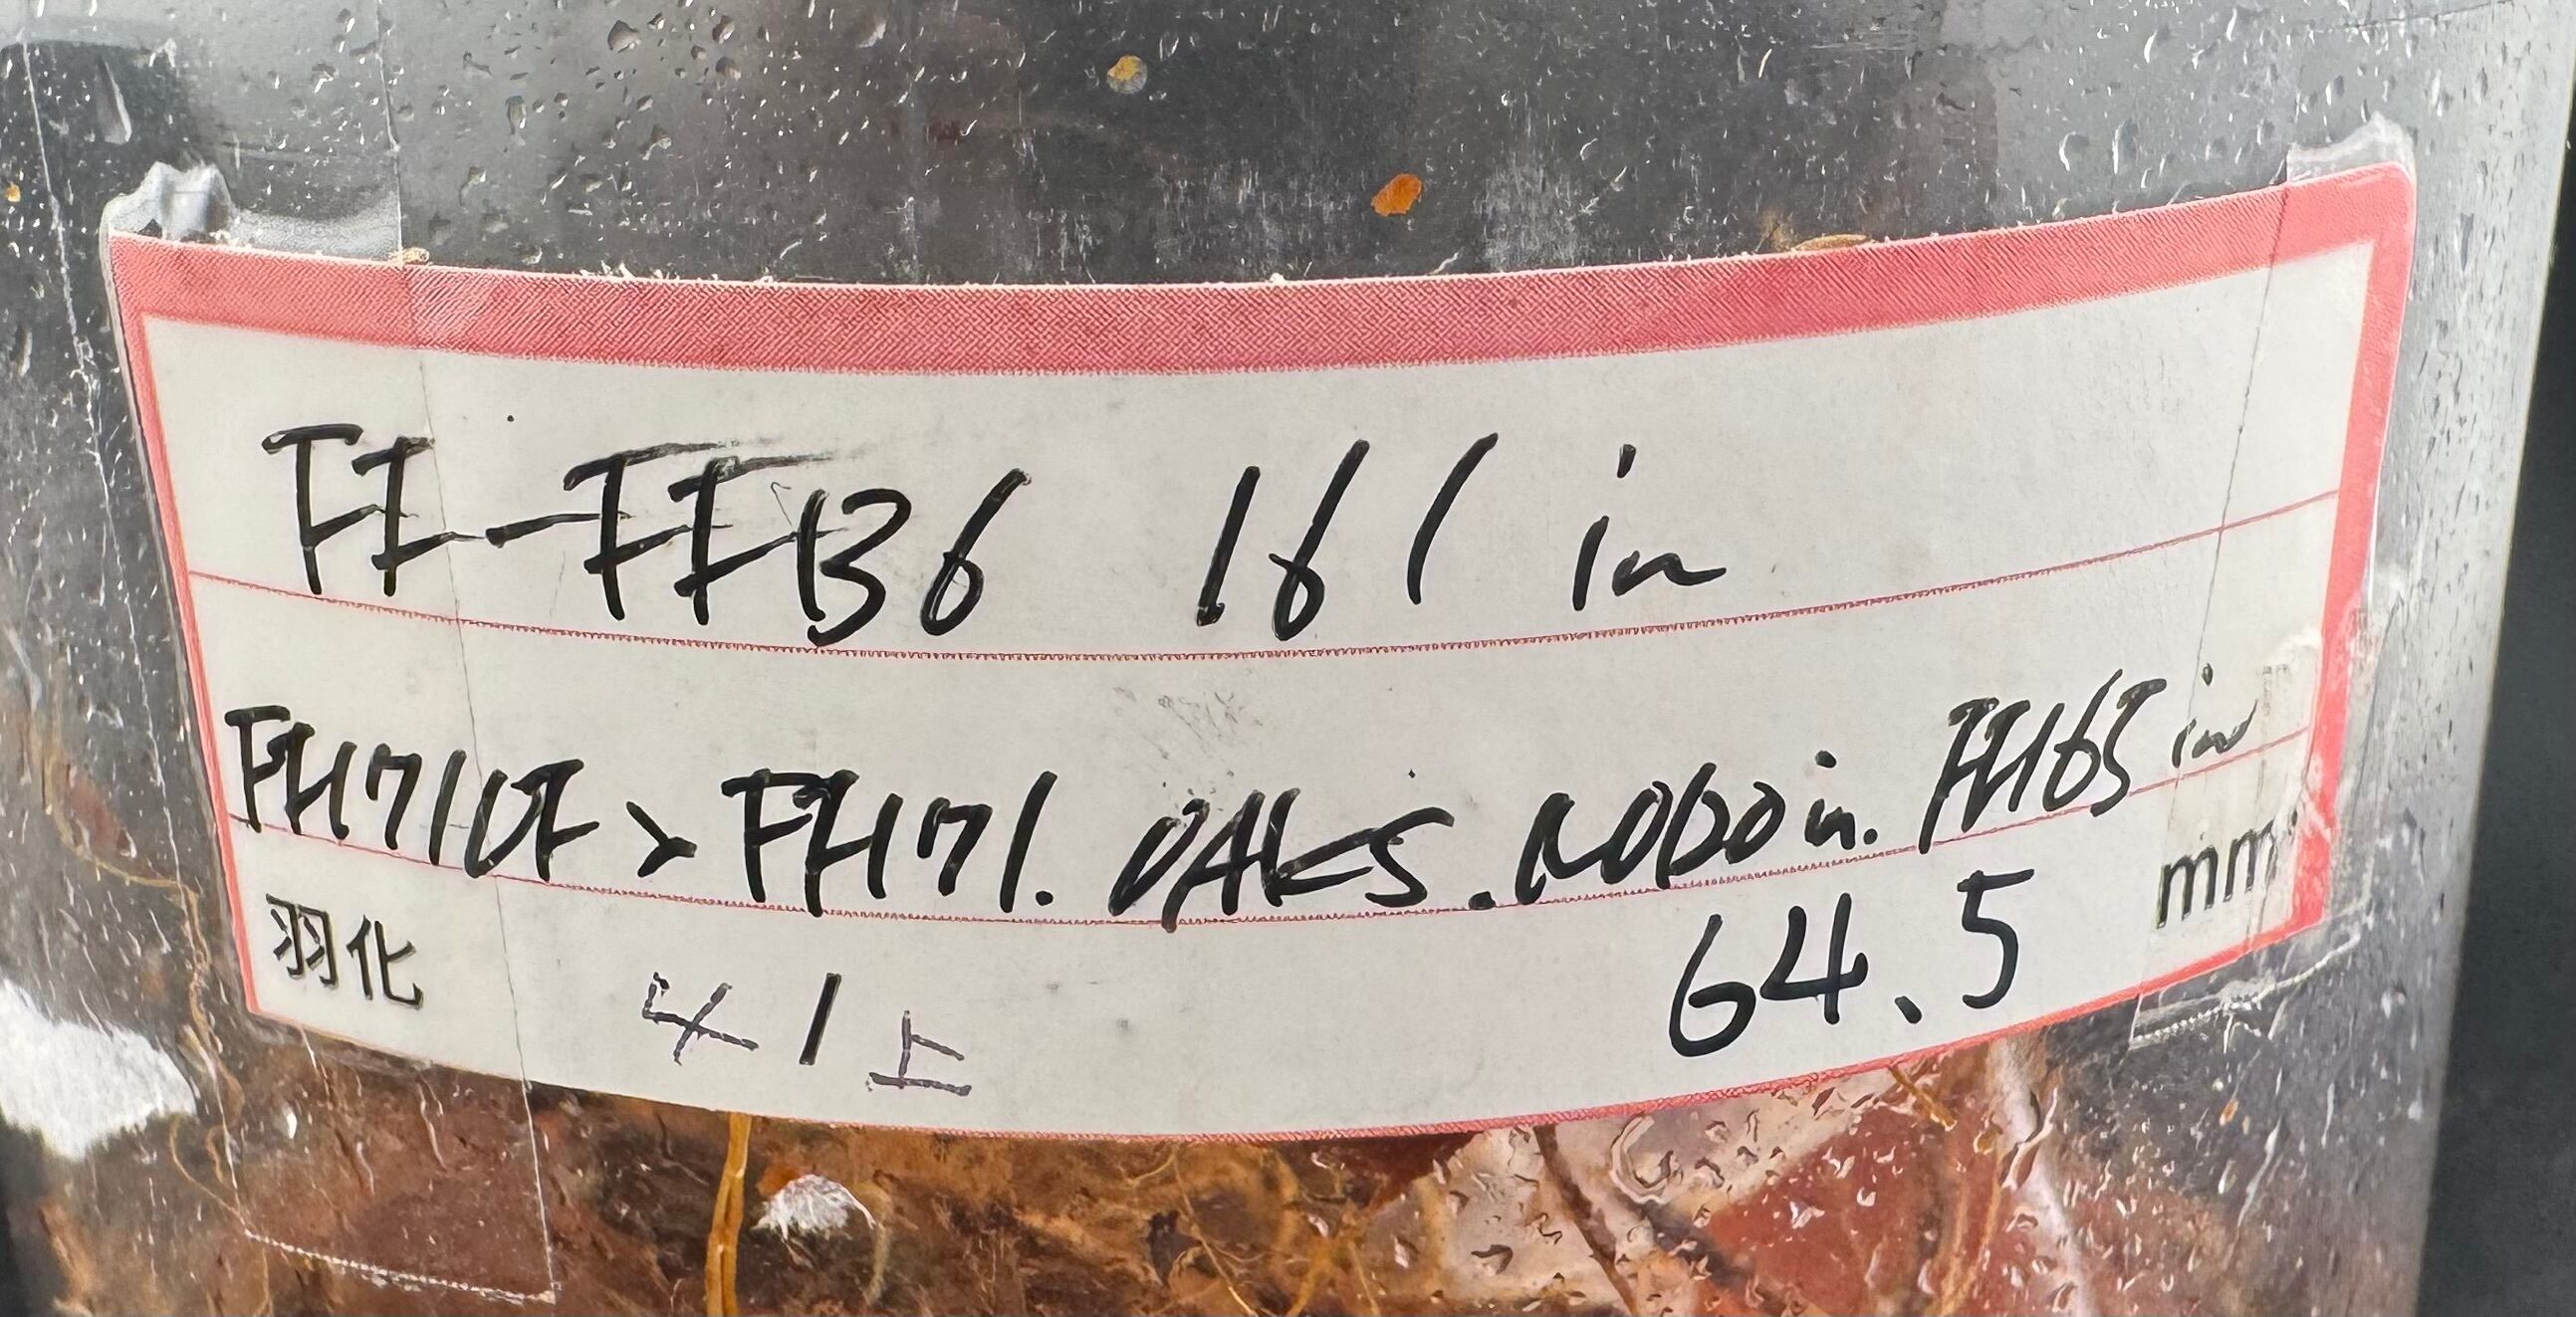 FF-FFB6 161 in
FH71UF > FH71. OAKS. NOBO in. FH165 in
羽化 4/上 64.5 mm